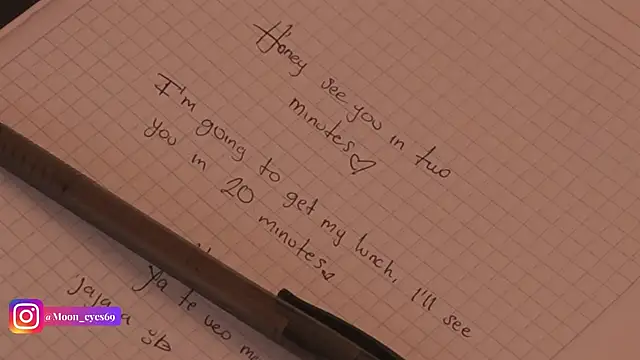 Honey see you in two
minutes♡
I'm going to get my lunch, I'll see
you in 20 minutes♡
Ya te veo
jajaja
@Moon_eyes69